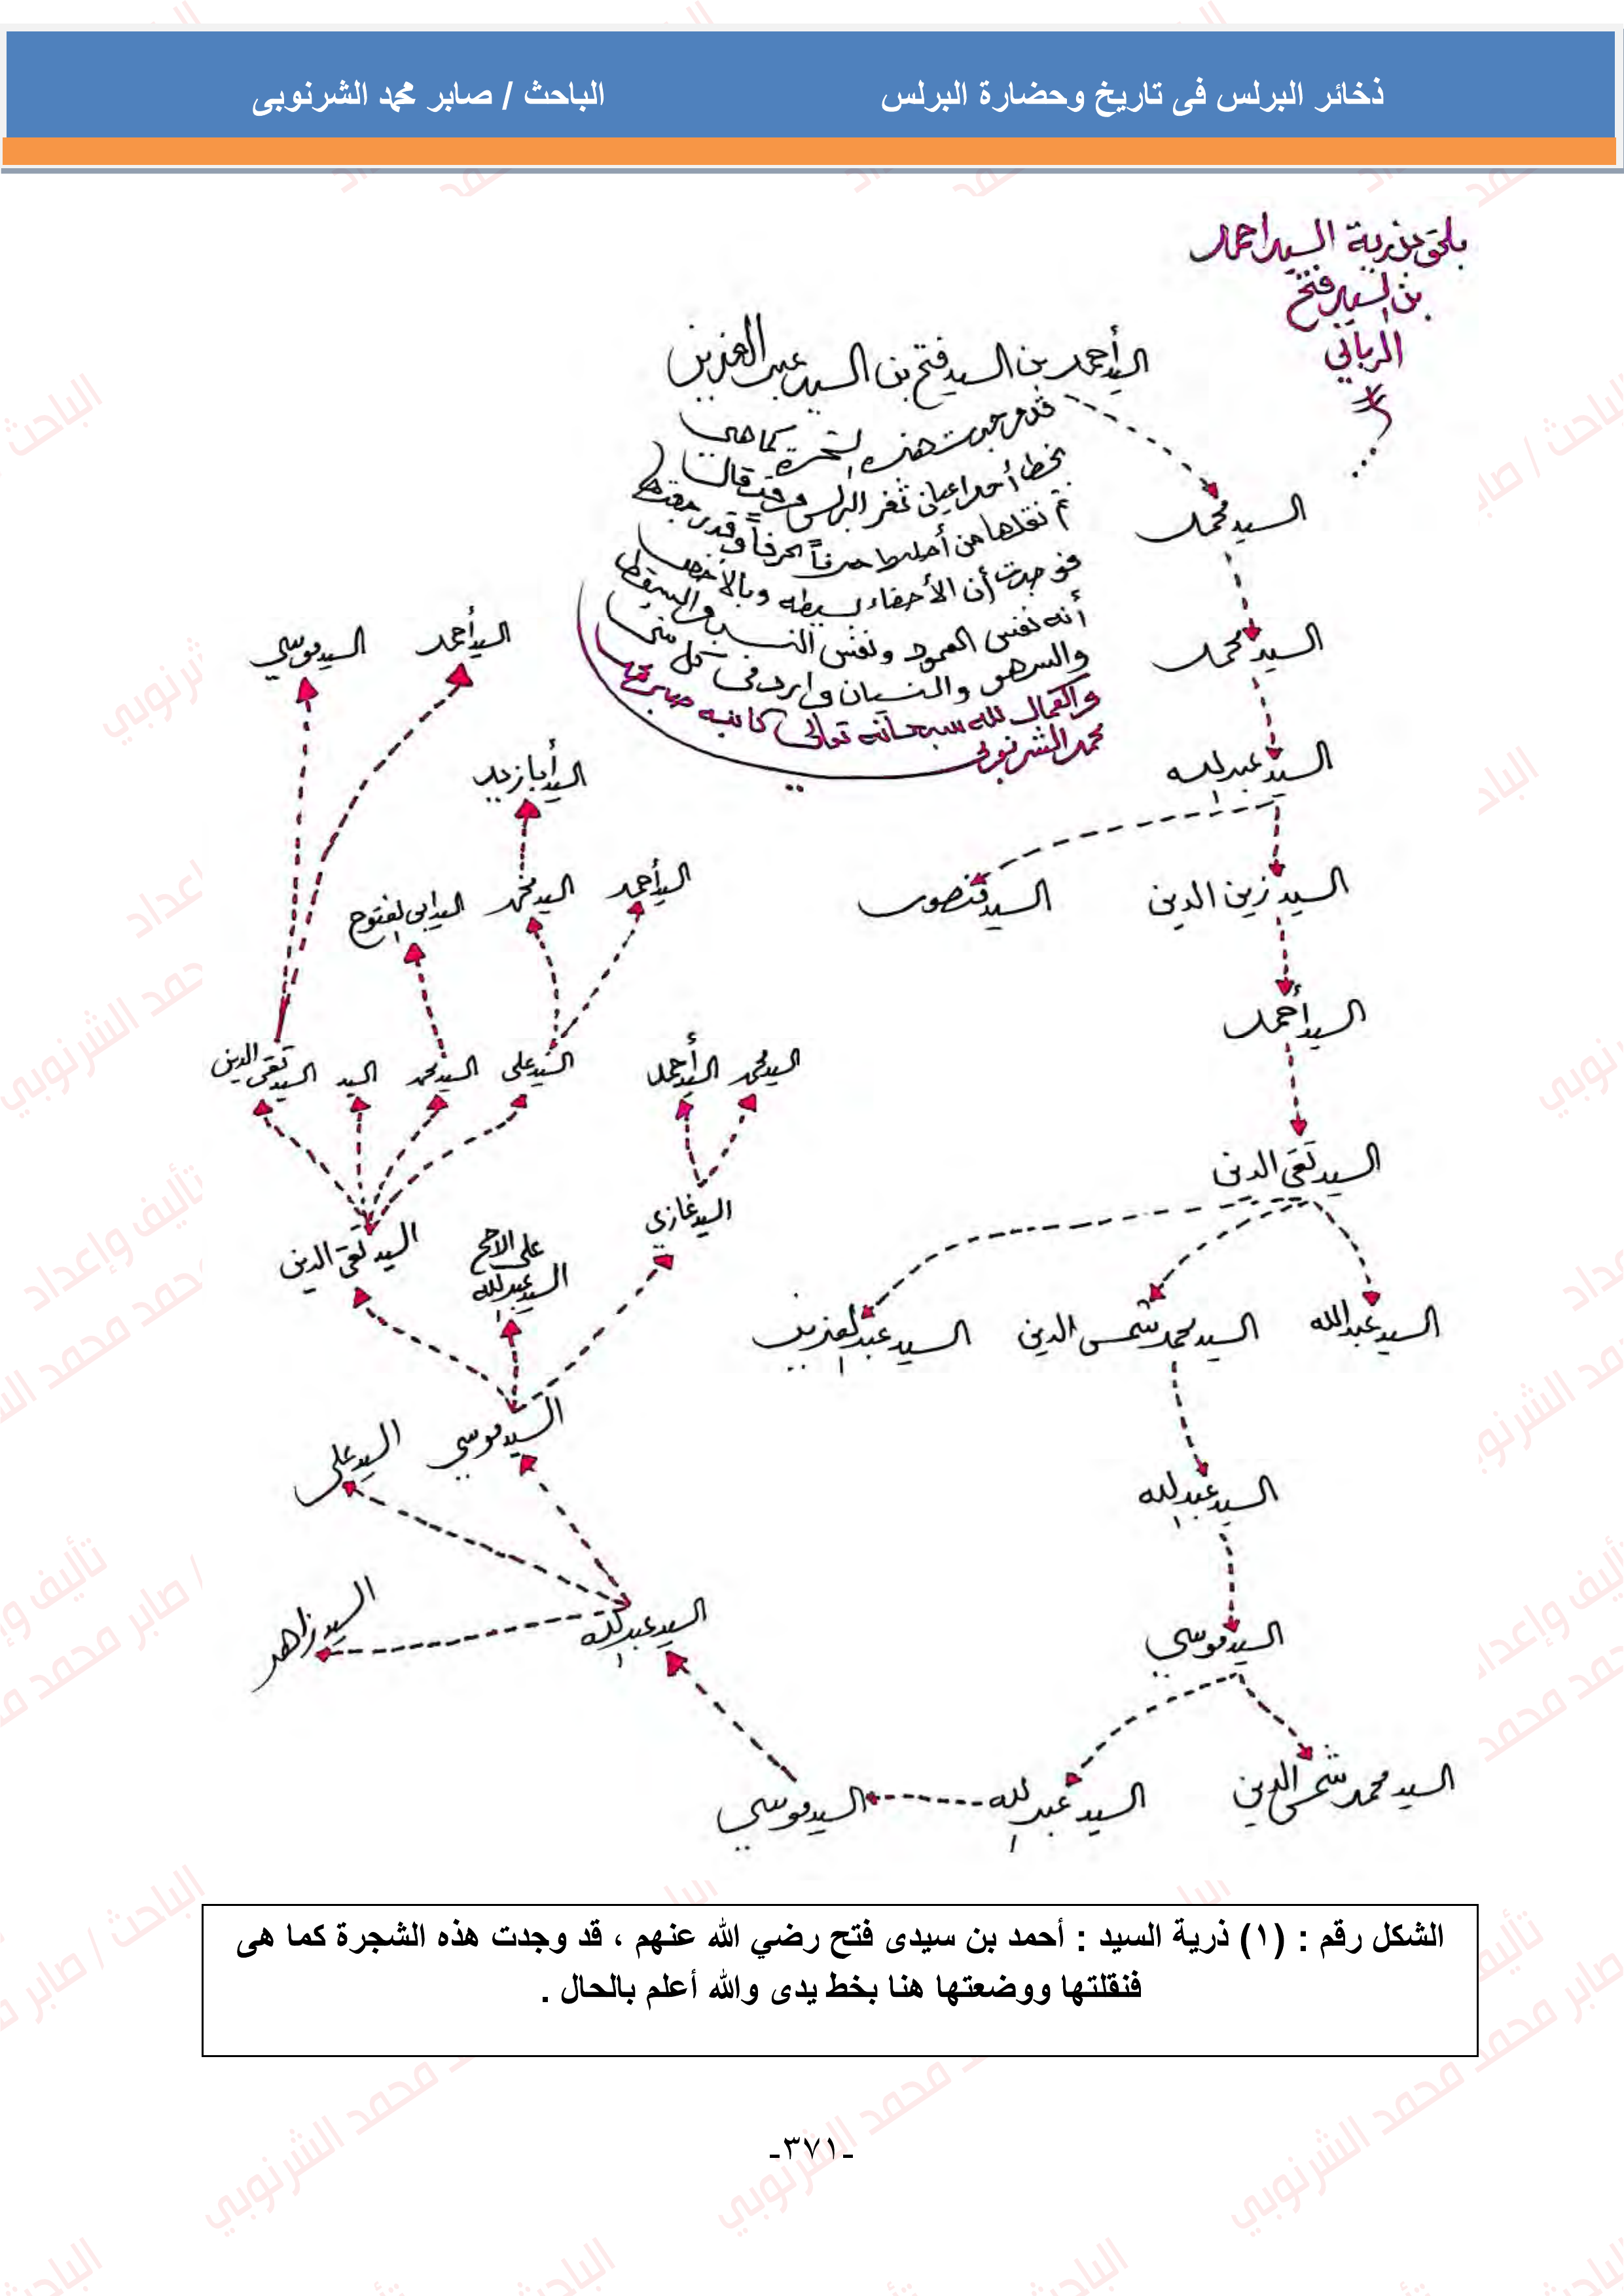 ذخائر البرلس فى تاريخ وحضارة البرلس
الباحث / صابر محمد الشرنوبى
يلحق بذرية السيد احمد
بن السيد فتح
الربانى
السيد أحمد بن السيد فتح بن السيد عبد العزيز
قد وجدت هذه الشجرة كما هى
بخط أحد اعيان ثغر البرلس وقد قال
تم نقلها من أصلها حرفاً بحرفاً وقد
فوجدت أن الأخطاء بسيطه وبالأخص
أنه نفس العمود ونفس النسب والسقط
والسهو والنسيان وارد فى كل شئ
والكمال لله سبحانه تعالى كاتبه صابر
محمد الشرنوبى
السيد محمد
السيد محمد
السيد عبد الله
السيد زين الدين
السيد قنصوه
السيد أحمد
السيد تقى الدين
السيد عبد الله
السيد محمد شمس الدين
السيد عبد العزيز
السيد عبد الله
السيد موسي
السيد محمد شمس الدين
السيد عبد الله
السيد موسي
السيد عبد الله
السيد زاهد
السيد على
السيد موسي
السيد غازي
على الاصح
السيد عبد الله
السيد تقى الدين
السيد محمد
السيد أحمد
السيد على
السيد محمد
السيد
السيد تقى الدين
السيد أحمد
السيد محمد
السيد ابى الفتوح
السيد أبا زيد
السيد أحمد
السيد موسي
الشكل رقم : (١) ذرية السيد : أحمد بن سيدى فتح رضي الله عنهم ، قد وجدت هذه الشجرة كما هى
فنقلتها ووضعتها هنا بخط يدى والله أعلم بالحال .
-٣٧١-